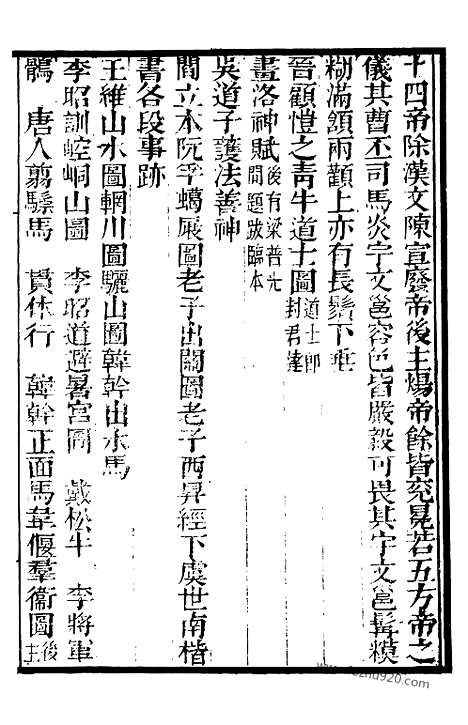 十四帝除漢文陳宣廢帝後主煬帝餘皆兖冕若五方帝之
儀其曹丕司馬炎宇文邕容色皆嚴毅可畏其宇文邕髯模
糊滿頷兩顴上亦有長鬚下垂
晉顧愷之青牛道士圖道士卽封君達
畫洛神賦後有梁普光間題跋臨本
吳道子護法善神
閻立本阮孚蠟屐圖老子出關圖老子西昇經下虞世南楷
書各段事跡
王維山水圖輞川圖驪山圖韓幹出水馬
李昭訓崆峒山圖 李昭道避暑宮圖 戴松牛 李將軍
鶻 唐人剪騣馬 貫休行 韓幹正面馬韋偃羣衞圖後主